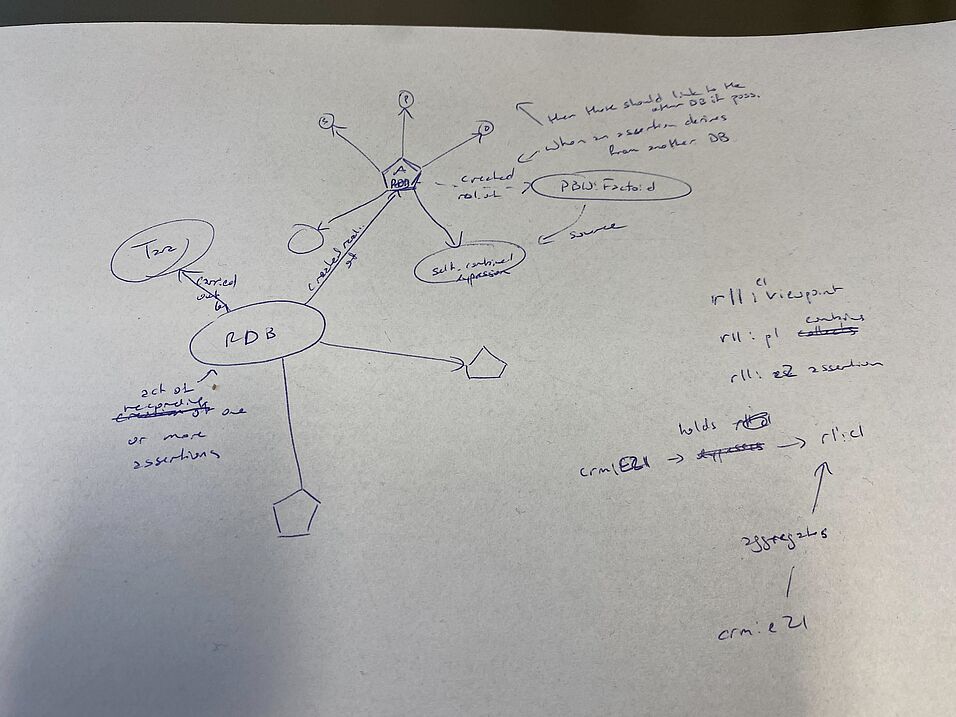 then these should link to the
other DB if poss.
When an assertion derives
from another DB
S
P
O
A
RDB
created
PBW: Factoid
source
self-contained
expression
carried
out
created
of
RDB
act of
recording
creation of one
or more
assertions
rll: C1 viewpoint
rll: p1 combines
collects
rll: assertion
holds
crm:E21
aggregates
crm:e21